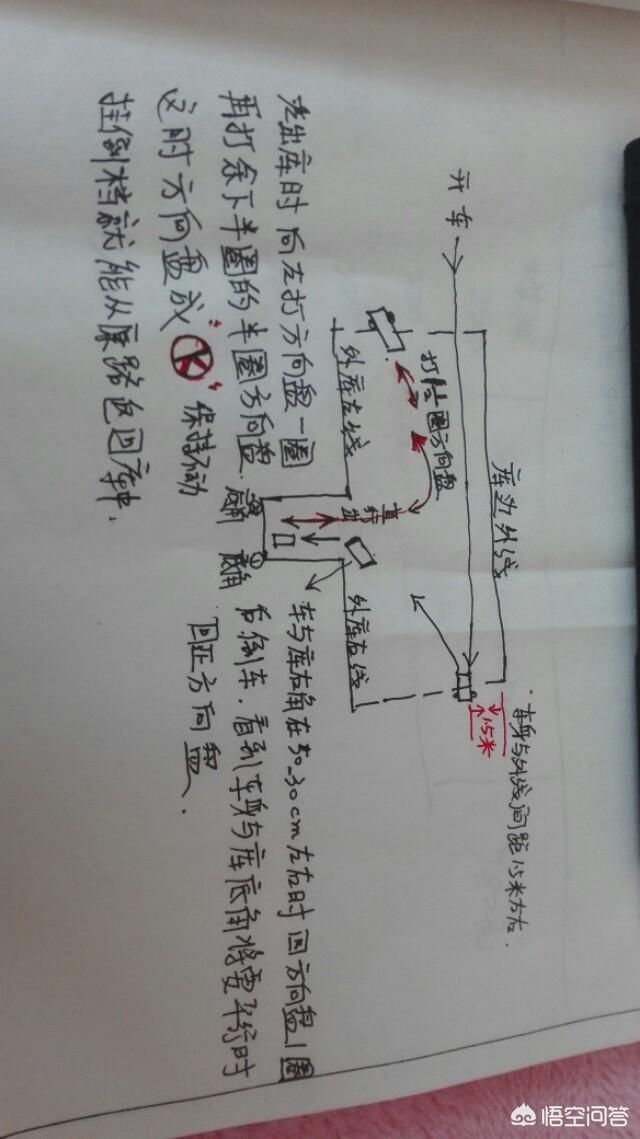 开车
库边外线
车身与外线间距1.5米左右.
1.5米
圈方向盘
外库左线
底角 底角
车与库左角在50-30cm左右时回方向盘1圈
后倒车.看到车身与库底角将要平行时
回正方向盘.
出库时向左打方向盘一圈
再打余下半圈的半圈方向盘.
这时方向盘成" "保持不动
挂倒档就能从原路返回库中.
悟空问答